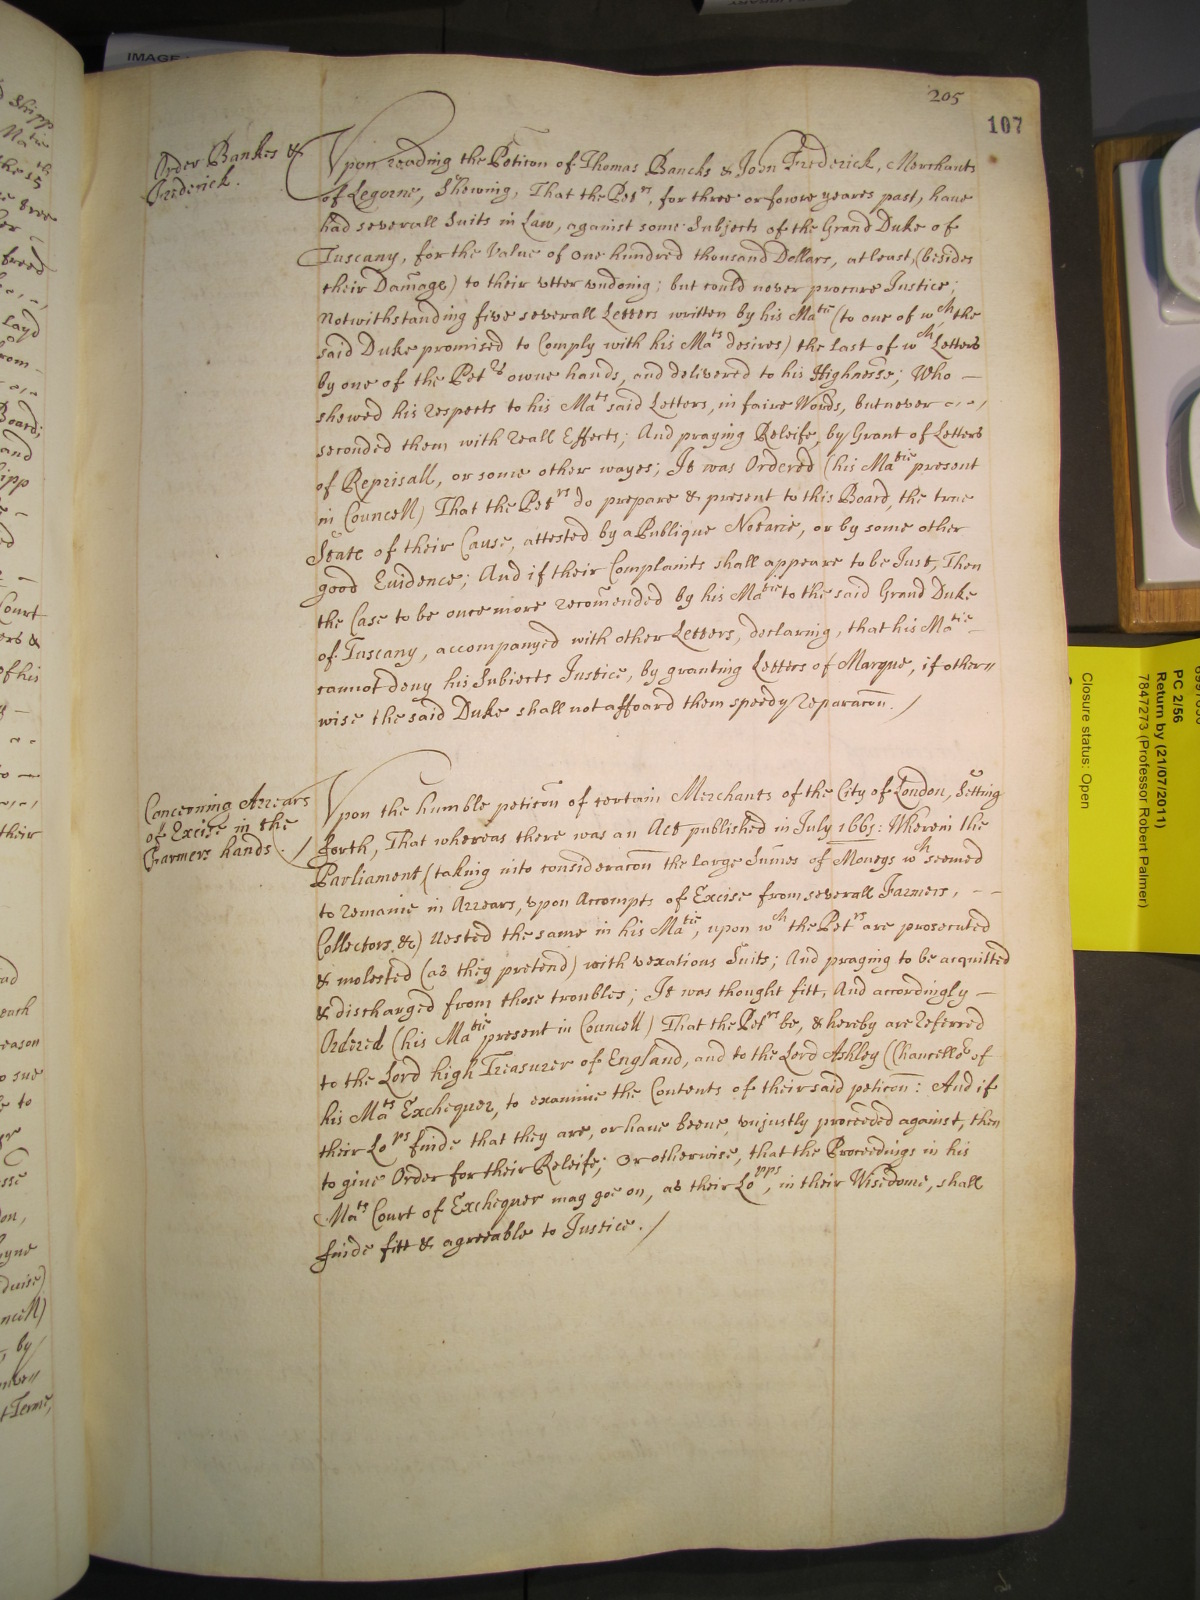 IMAGE
205
107
Order Bankes &
Frederick.
Vpon reading the Peticon of Thomas Bancks & John Frederick, Merchants
of Legorne, Shewing, That the Petrs, for three or fowre yeares past, haue
had severall Suits in Law, against some Subjects of the Grand Duke of
Tuscany, for the Value of one hundred thousand Dollars, at least, (besides
their Damage) to their vtter vndoing; but could never procure Justice;
Notwithstanding five severall Letters written by his Matie (to one of wch the
said Duke promised to Comply with his Mats desires) the last of wch Letters
by one of the Petrs owne hands, and delivered to his Highnesse; Who —
shewed his respects to his Mats said Letters, in faire Words, but never
seconded them with reall Effects; And praying Releife, by Grant of Letters
of Reprisall, or some other wayes; It was Ordered (his Matie present
in Councell) That the Petrs do prepare & present to this Board, the true
State of their Cause, attested by a Publique Notarie, or by some other
good Euidence; And if their Complaints shall appeare to be Just, Then
the Case to be once more recomended by his Matie to the said Grand Duke
of Tuscany, accompanyed with other Letters, declaring, that his Matie —
cannot deny his Subiects Justice, by granting Letters of Marque, if other//
wise the said Duke shall not affoard them speedy reparacon. /
Concerning Arrears
of Excise in the
Farmers hands. /
Vpon the humble peticon of certain Merchants of the City of London, Setting
forth, That whereas there was an Act published in July 1665: Wherein the
Parliament (taking into consideracon the large Sumes of Moneys wch seemed
to remaine in Arrears, vpon Accompts of Excise from severall Farmers, - -
Collectors, &c) Uested the same in his Matie, upon wch the Petrs are prosecuted
& molested (as they pretend) with vexatious Suits; And praying to be acquitted
& discharged from those troubles; It was thought fitt, And accordingly —
Ordered (his Matie present in Councell) That the Petrs be, & hereby are referred
to the Lord high Treasurer of England, and to the Lord Ashley (Chancellor of
his Mats Exchequer, to examine the Contents of their said peticon: And if
their Lops finde that they are, or haue beene, vnjustly proceeded against, then
to giue Order for their Releife; Or otherwise, that the Proceedings in his
Mats Court of Exchequer may goe on, as their Lopps, in their Wisedome, shall
finde fitt & agreeable to Justice. /
PC 2/56
Return by (21/07/2011)
7847273 (Professor Robert Palmer)
Closure status: Open